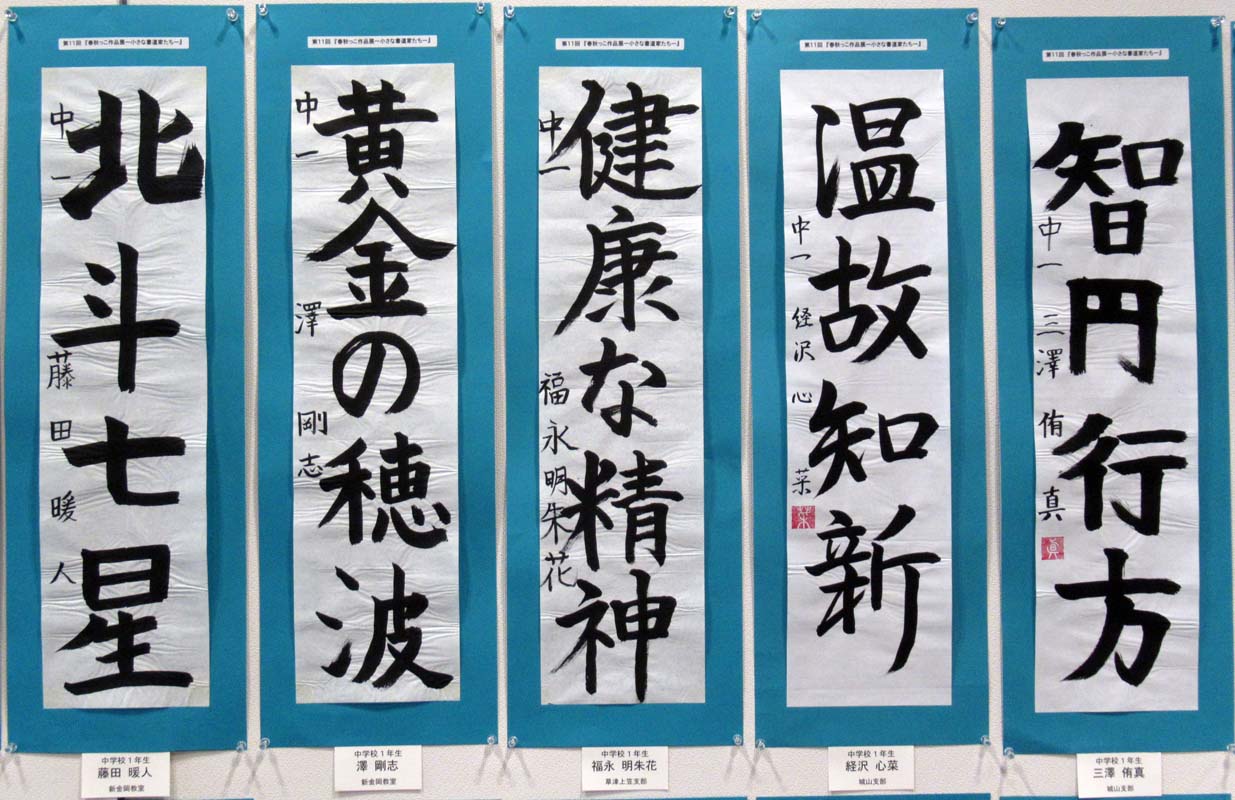 第11回 『春秋っこ作品展ー小さな書道家たちー』
北斗七星
中一 藤田暖人
中学校1年生
藤田 暖人
新金岡教室
第11回 『春秋っこ作品展ー小さな書道家たちー』
黄金の穂波
中一 澤剛志
中学校1年生
澤 剛志
新金岡教室
第11回 『春秋っこ作品展ー小さな書道家たちー』
健康な精神
中一 福永明朱花
中学校1年生
福永 明朱花
草津上笠支部
第11回 『春秋っこ作品展ー小さな書道家たちー』
温故知新
中一 経沢心菜
菜
中学校1年生
経沢 心菜
城山支部
第11回 『春秋っこ作品展ー小さな書道家たちー』
智円行方
中一 三澤侑真
真
中学校1年生
三澤 侑真
城山支部